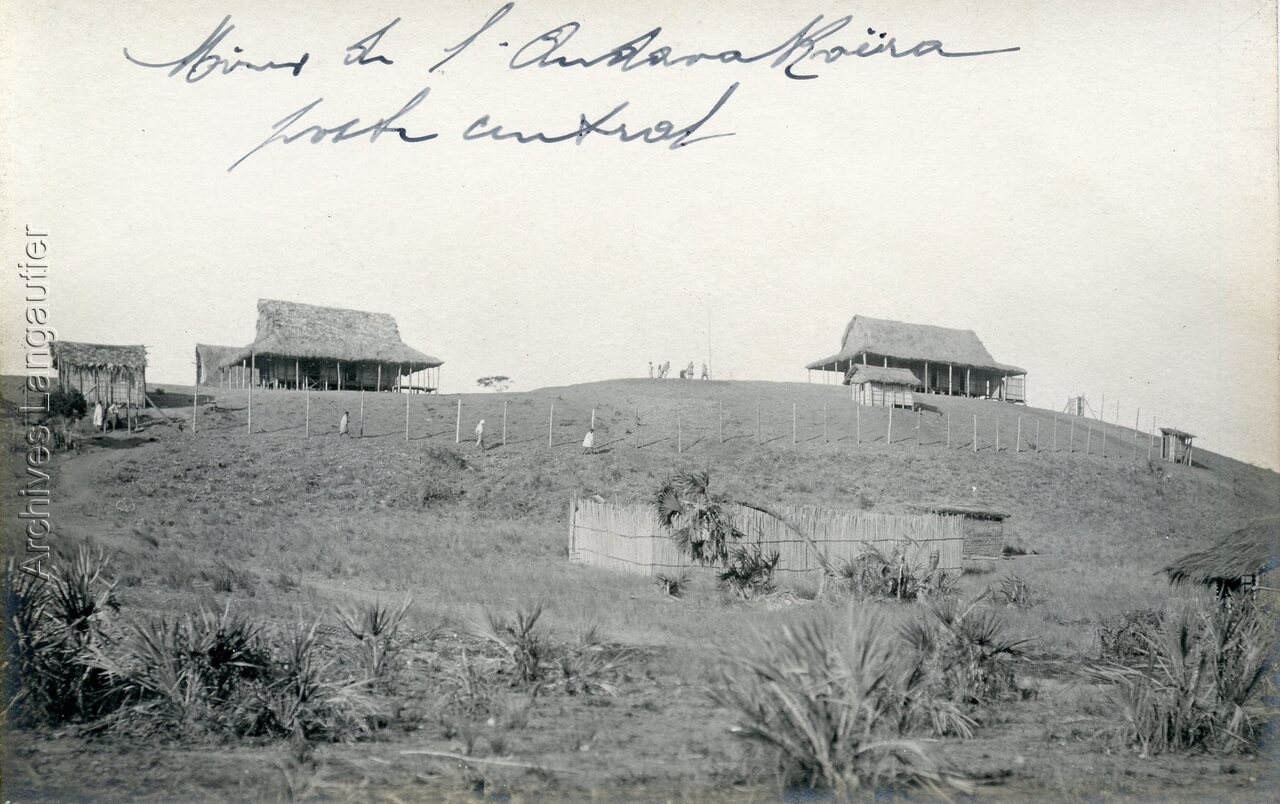 Mines de l'AndavaKoëra
poste central
Archives Langautier